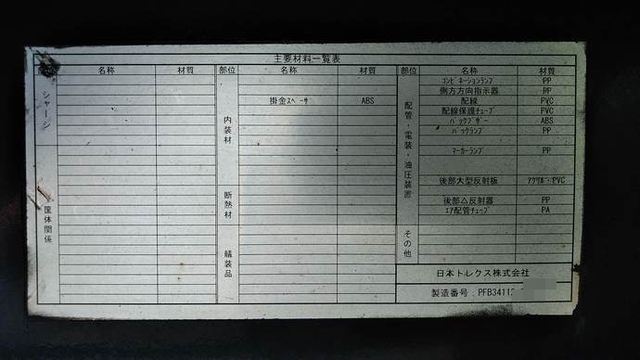 主要材料一覧表
部位 名称 材質 部位 名称 材質 部位 名称 材質
シャーシ
筐体関係
内装材
掛金スペーサ ABS
断熱材
艤装品
配管・電装・油圧装置
コンビネーションランプ PP
側方方向指示器 PP
配線 PVC
配線保護チューブ PVC
バックブザー ABS
バックランプ PP
マーカーランプ PP
後部大型反射板 PVC
後部△反射器 PP
エア配管チューブ PA
その他
日本トレクス株式会社
製造番号: PFB34112